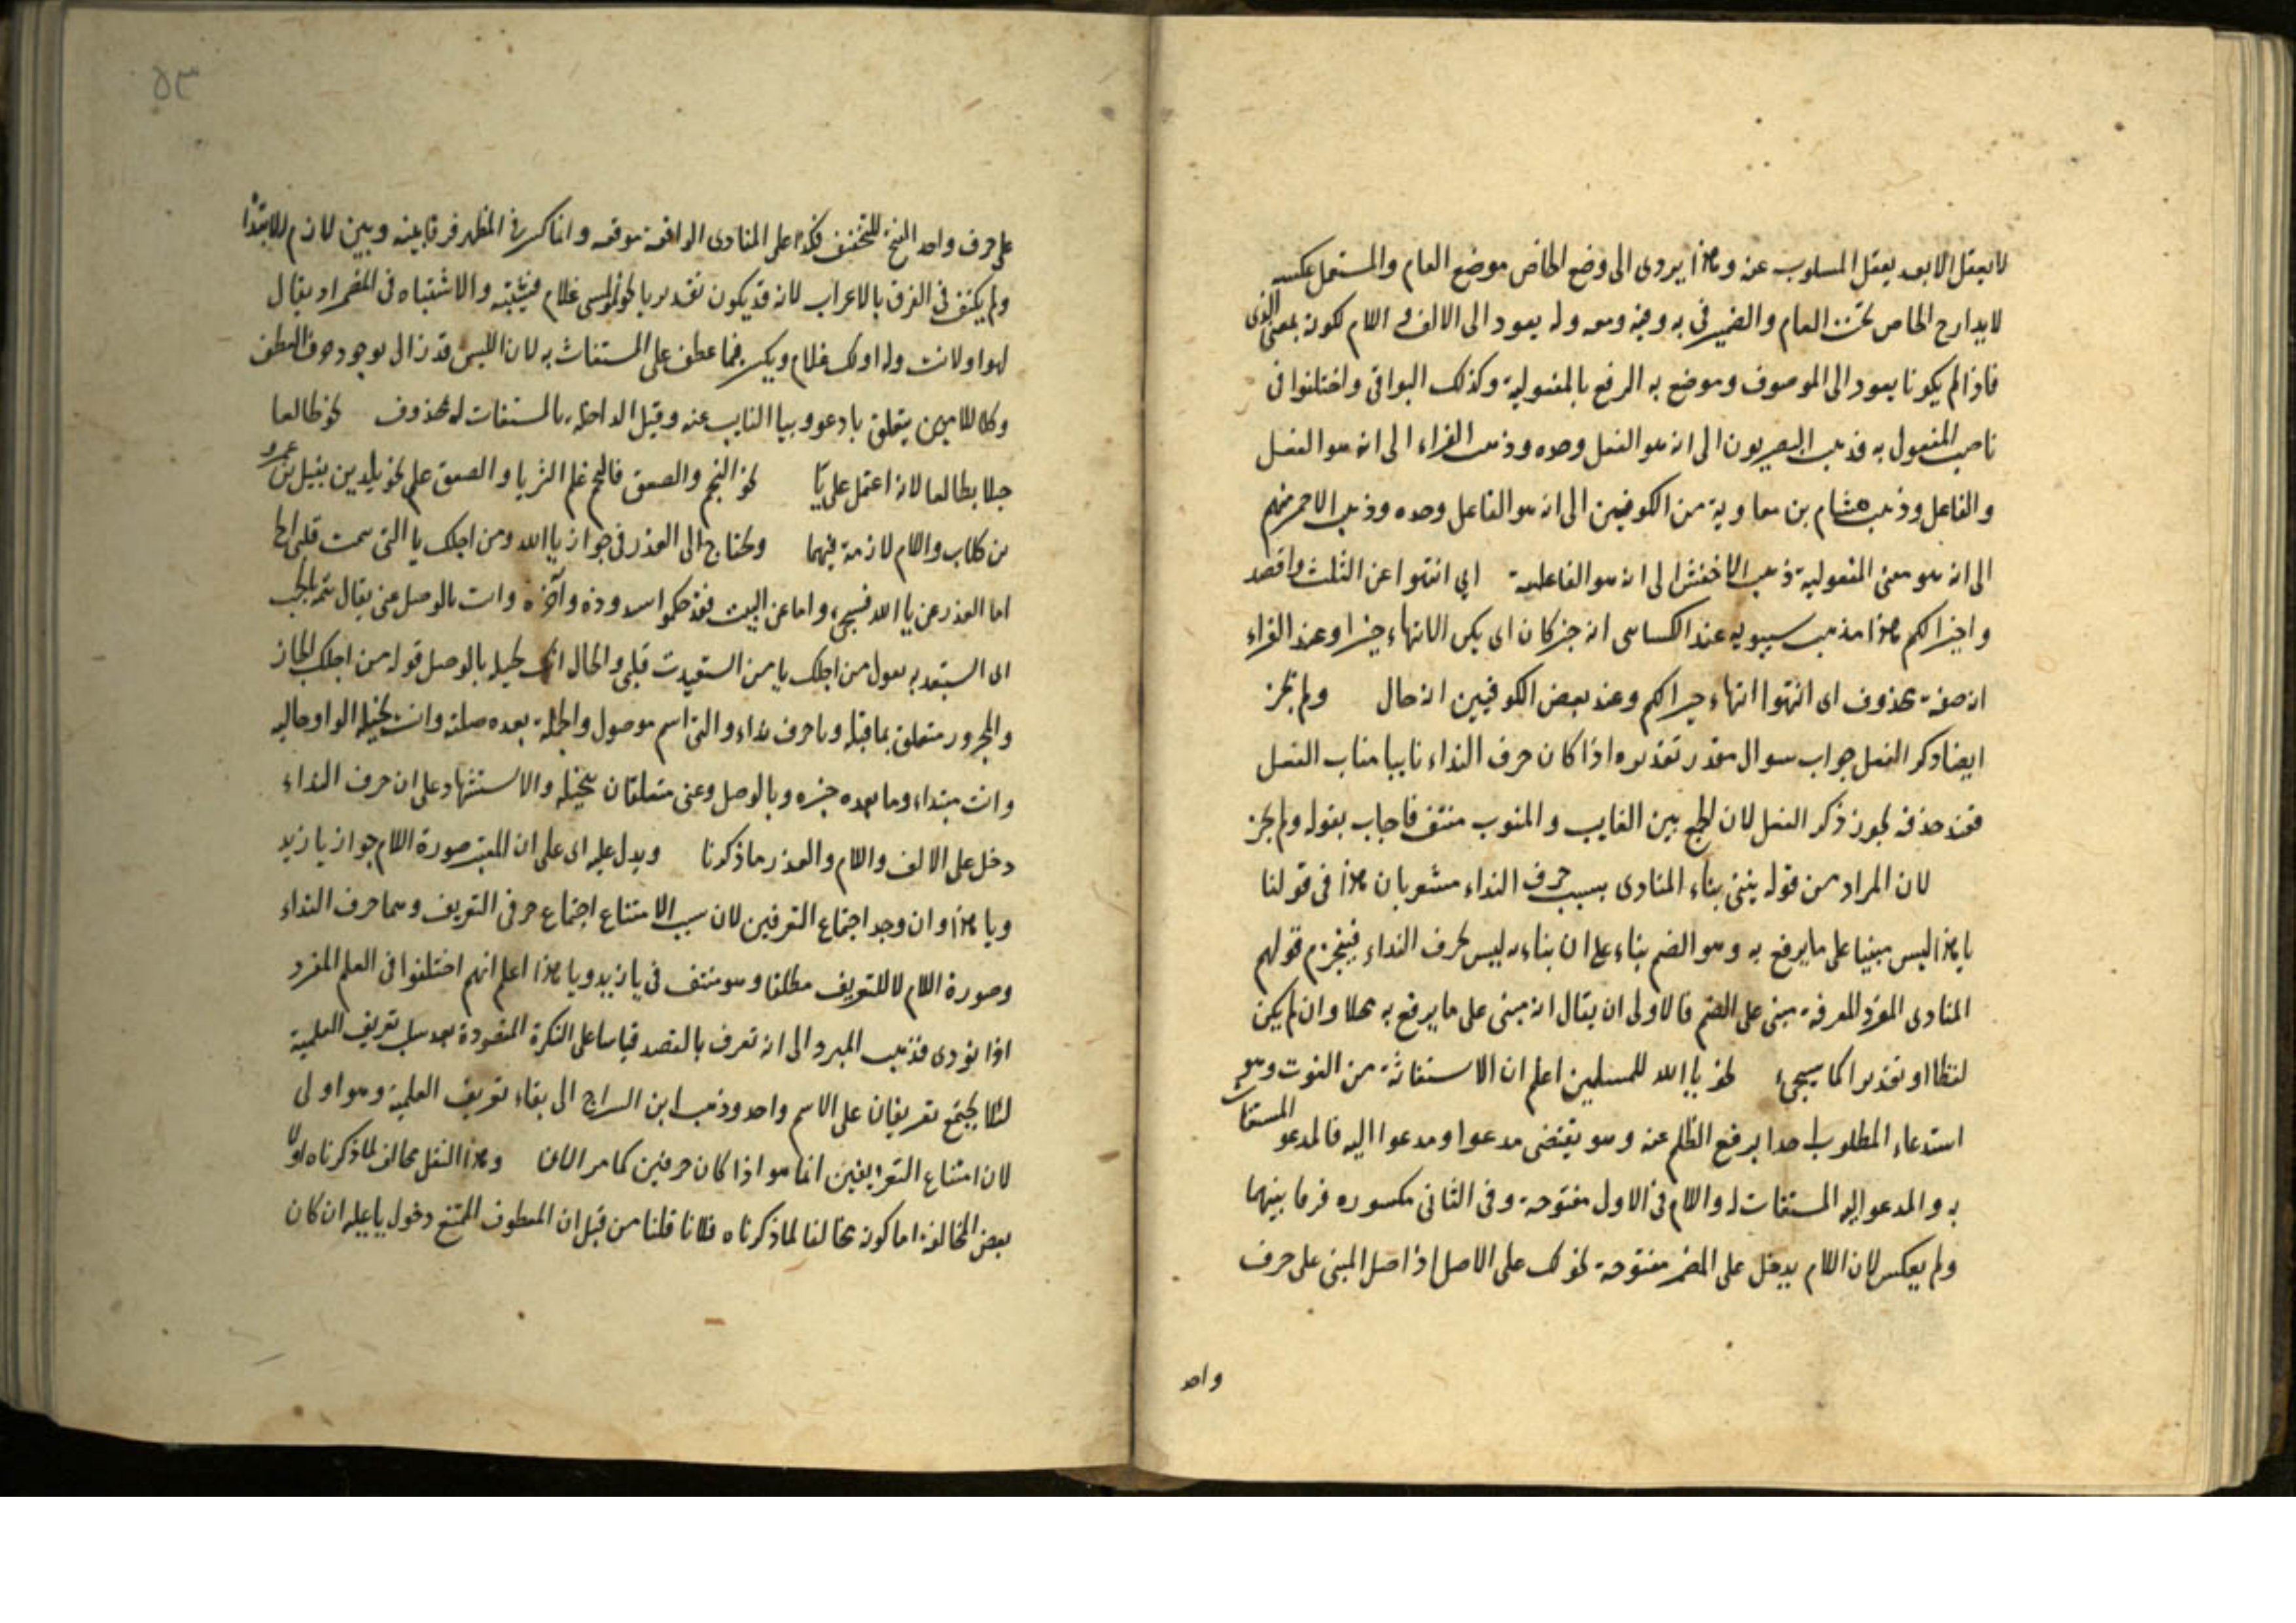 لا يعقل الا بعد يعقل المسلوب عنه وهذا يردى الى وضع الخاص موضع العام والمستعمل عكسه
لا يدارج الخاص تحت العام والضمير فى به وفيه ومعه وله يعود الى الالف و اللام لكونه بمعنى الذى
فاذا لم يكونا يعود الى الموصوف وموضع به الرفع بالمفعولية وكذلك البواقى واختلفوا فى
ناصب المفعول به فذهب البصريون الى انه هو الفعل وحده وذهب الفراء الى انه هو الفعل
والفاعل وذهب هشام بن معاوية من الكوفيين الى انه هو الفاعل وحده وذهب الاحمر منهم
الى انه هو معنى المفعولية ذهب الاخفش الى انه هو الفاعلية اى انتهوا عن الثلث واقصد
واخيرا لكم هذا مذهب سيبويه عند الكساى انه خبر كان اى يكن الانتهاء خيرا وعند الفراء
انه صفة محذوف اى انتهوا انتهاء خيرا لكم وعند بعض الكوفيين انه حال ولم يجز
ايضا ذكر الفعل جواب سوال مقدر تقديره اذا كان حرف النداء نايبا مناب الفعل
فعند حذفه يجوز ذكر الفعل لان الجمع بين الغايب والمنوب منتف فاجاب بقوله ولم يجز
لان المراد من قوله ينبى بناء المنادى بسبب حرف النداء مشعر بان هذا فى قولنا
يا هذا ليس مبنيا على ما يرفع به وهو الضم بناء على ان بناءه ليس بحرف النداء فينخرم قولهم
المنادى المفرد المعرفة مبنى على الضم فالاولى ان يقال انه مبنى على ما يرفع به محلا وان لم يكن
لفظا او تقديرا كما سيجىء نحو يا الله للمسلمين اعلم ان الاستغاثة من الغوث وهو
استدعاء المطلوب احدا يرفع الظلم عنه وهو يقتضى مدعوا ومدعوا اليه فالمدعو المستغاث
به والمدعو اليه المستغاث له واللام فى الاول مفتوحة وفى الثانى مكسوره فرقا بينهما
ولم يعكس لان اللام يدخل على المضمر مفتوحة نحو لك على الاصل اذ اصل المبنى على حرف
واحد
٥٣
على حرف واحد الفتح للتخفيف فكذا على المنادى الواقعة موقعه وانما كسر فى المظهر فرقا بينه وبين لام الابتداء
ولم يكتف فى الفرق بالاعراب لانه قد يكون تقديريا نحو لموسى غلام فيشتبه والاشتباه فى المضمر اذ يقال
لهو او لانت وله او لك غلام ويكسر فيما عطف على المستغاث به لان اللبس قد زال بوجود حرف العطف
وكلا اللامين يتعلق بادعو وبيا النايب عنه وقيل الداخلة بالمستغاث له محذوف نحو طالعا
جبلا يطالعا لانه اعتمل على يا نحو النجم والصعق فالنجم علم الثريا والصعق علم خويلد بن نفيل بن عمرو
بن كلاب واللام لازمة فيهما ويحتاج الى العذر فى جواز يا الله ومن اجلك يا التى تيمت قلبى
اما العذر عن يا الله فسيجىء واما عن البيت فقد حكموا بشذوذه وآخره وانت بالوصل عنى يقال تيمه الحب
اى استعبده يقول من اجلك يا من استعبدت قلبى والحال انك بخيلة بالوصل قوله من اجلك الجار
والمجرور متعلق بما قبله ويا حرف نداء والتى اسم موصول والجملة بعده صلته وانت بخيلة الواو حاليه
وانت مبتداء وما بعده خبره وبالوصل وعنى متعلقان بخيلة والاستشهاد على ان حرف النداء
دخل على الالف واللام والعذر ما ذكرنا ويدل عليه اى على ان المعتبر صورة اللام جواز يا زيد
ويا هذا وان وجد اجتماع التعريفين لان سبب الامتناع اجتماع حرفى التعريف وهما حرف النداء
وصورة اللام لا للتعريف مطلقا وهو منتف فى يا زيد ويا هذا اعلم انهم اختلفوا فى العلم المفرد
اذا نودى فذهب المبرد الى انه تعرف بالقصد قياسا على النكرة المقصودة بعد سلب تعريف العلمية
لئلا يجتمع تعريفان على الاسم واحد وذهب ابن السراج الى بقاء تعريف العلمية وهو اولى
لان امتناع التعريفين انما هو اذا كان حرفين كما مر الان وهذا النقل مخالف لما ذكرناه اولا
بعض المخالفة اما كونه مخالفا لما ذكرناه فلانا قلنا من قبل ان المعطوف الممتنع دخول يا عليه ان كان